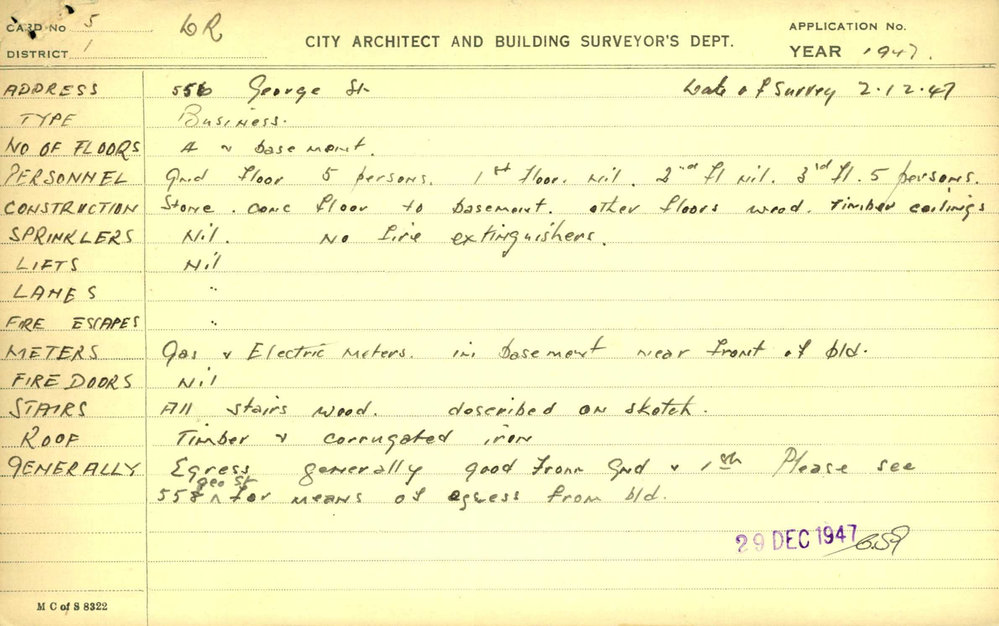 CARD No 5 LR APPLICATION No.
DISTRICT 1 CITY ARCHITECT AND BUILDING SURVEYOR'S DEPT. YEAR 1947.
ADDRESS 556 George St Date of Survey 2.12.47
TYPE Business.
NO OF FLOORS 4 & basement.
PERSONNEL Gnd floor 5 persons. 1st floor. Nil. 2nd fl Nil. 3rd fl. 5 persons.
CONSTRUCTION Stone. conc floor to basement. other floors wood. Timber ceilings
SPRINKLERS Nil. No fire extinguishers.
LIFTS Nil
LANES "
FIRE ESCAPES "
METERS Gas & Electric Meters. in basement near front of bld.
FIRE DOORS Nil
STAIRS All stairs wood. described on sketch.
ROOF Timber & corrugated iron
GENERALLY Egress generally good from Gnd & 1st Please see
558 ^ Geo St for means of egress from bld.
29 DEC 1947
M C of S 8322